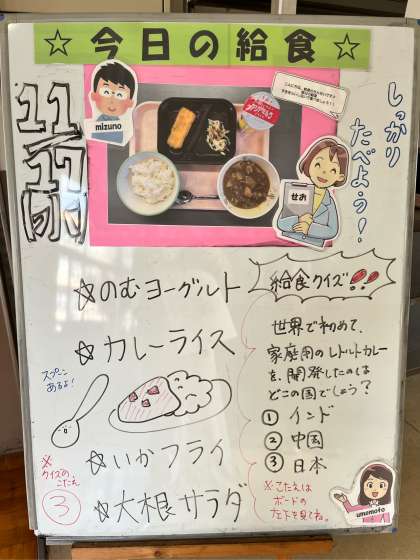 ☆ 今日の給食 ☆
11/17(月)
mizuno
しっかり
たべよう!
せお
☆のむヨーグルト
☆カレーライス
スプーン
あるよ!
☆いかフライ
☆大根サラダ
給食クイズ!!
世界で初めて、
家庭用のレトルトカレー
を、開発したのは
どこの国でしょう?
① インド
② 中国
③ 日本
※こたえは
ボードの
左下を見てね。
※
クイズのこたえ
③
umemoto